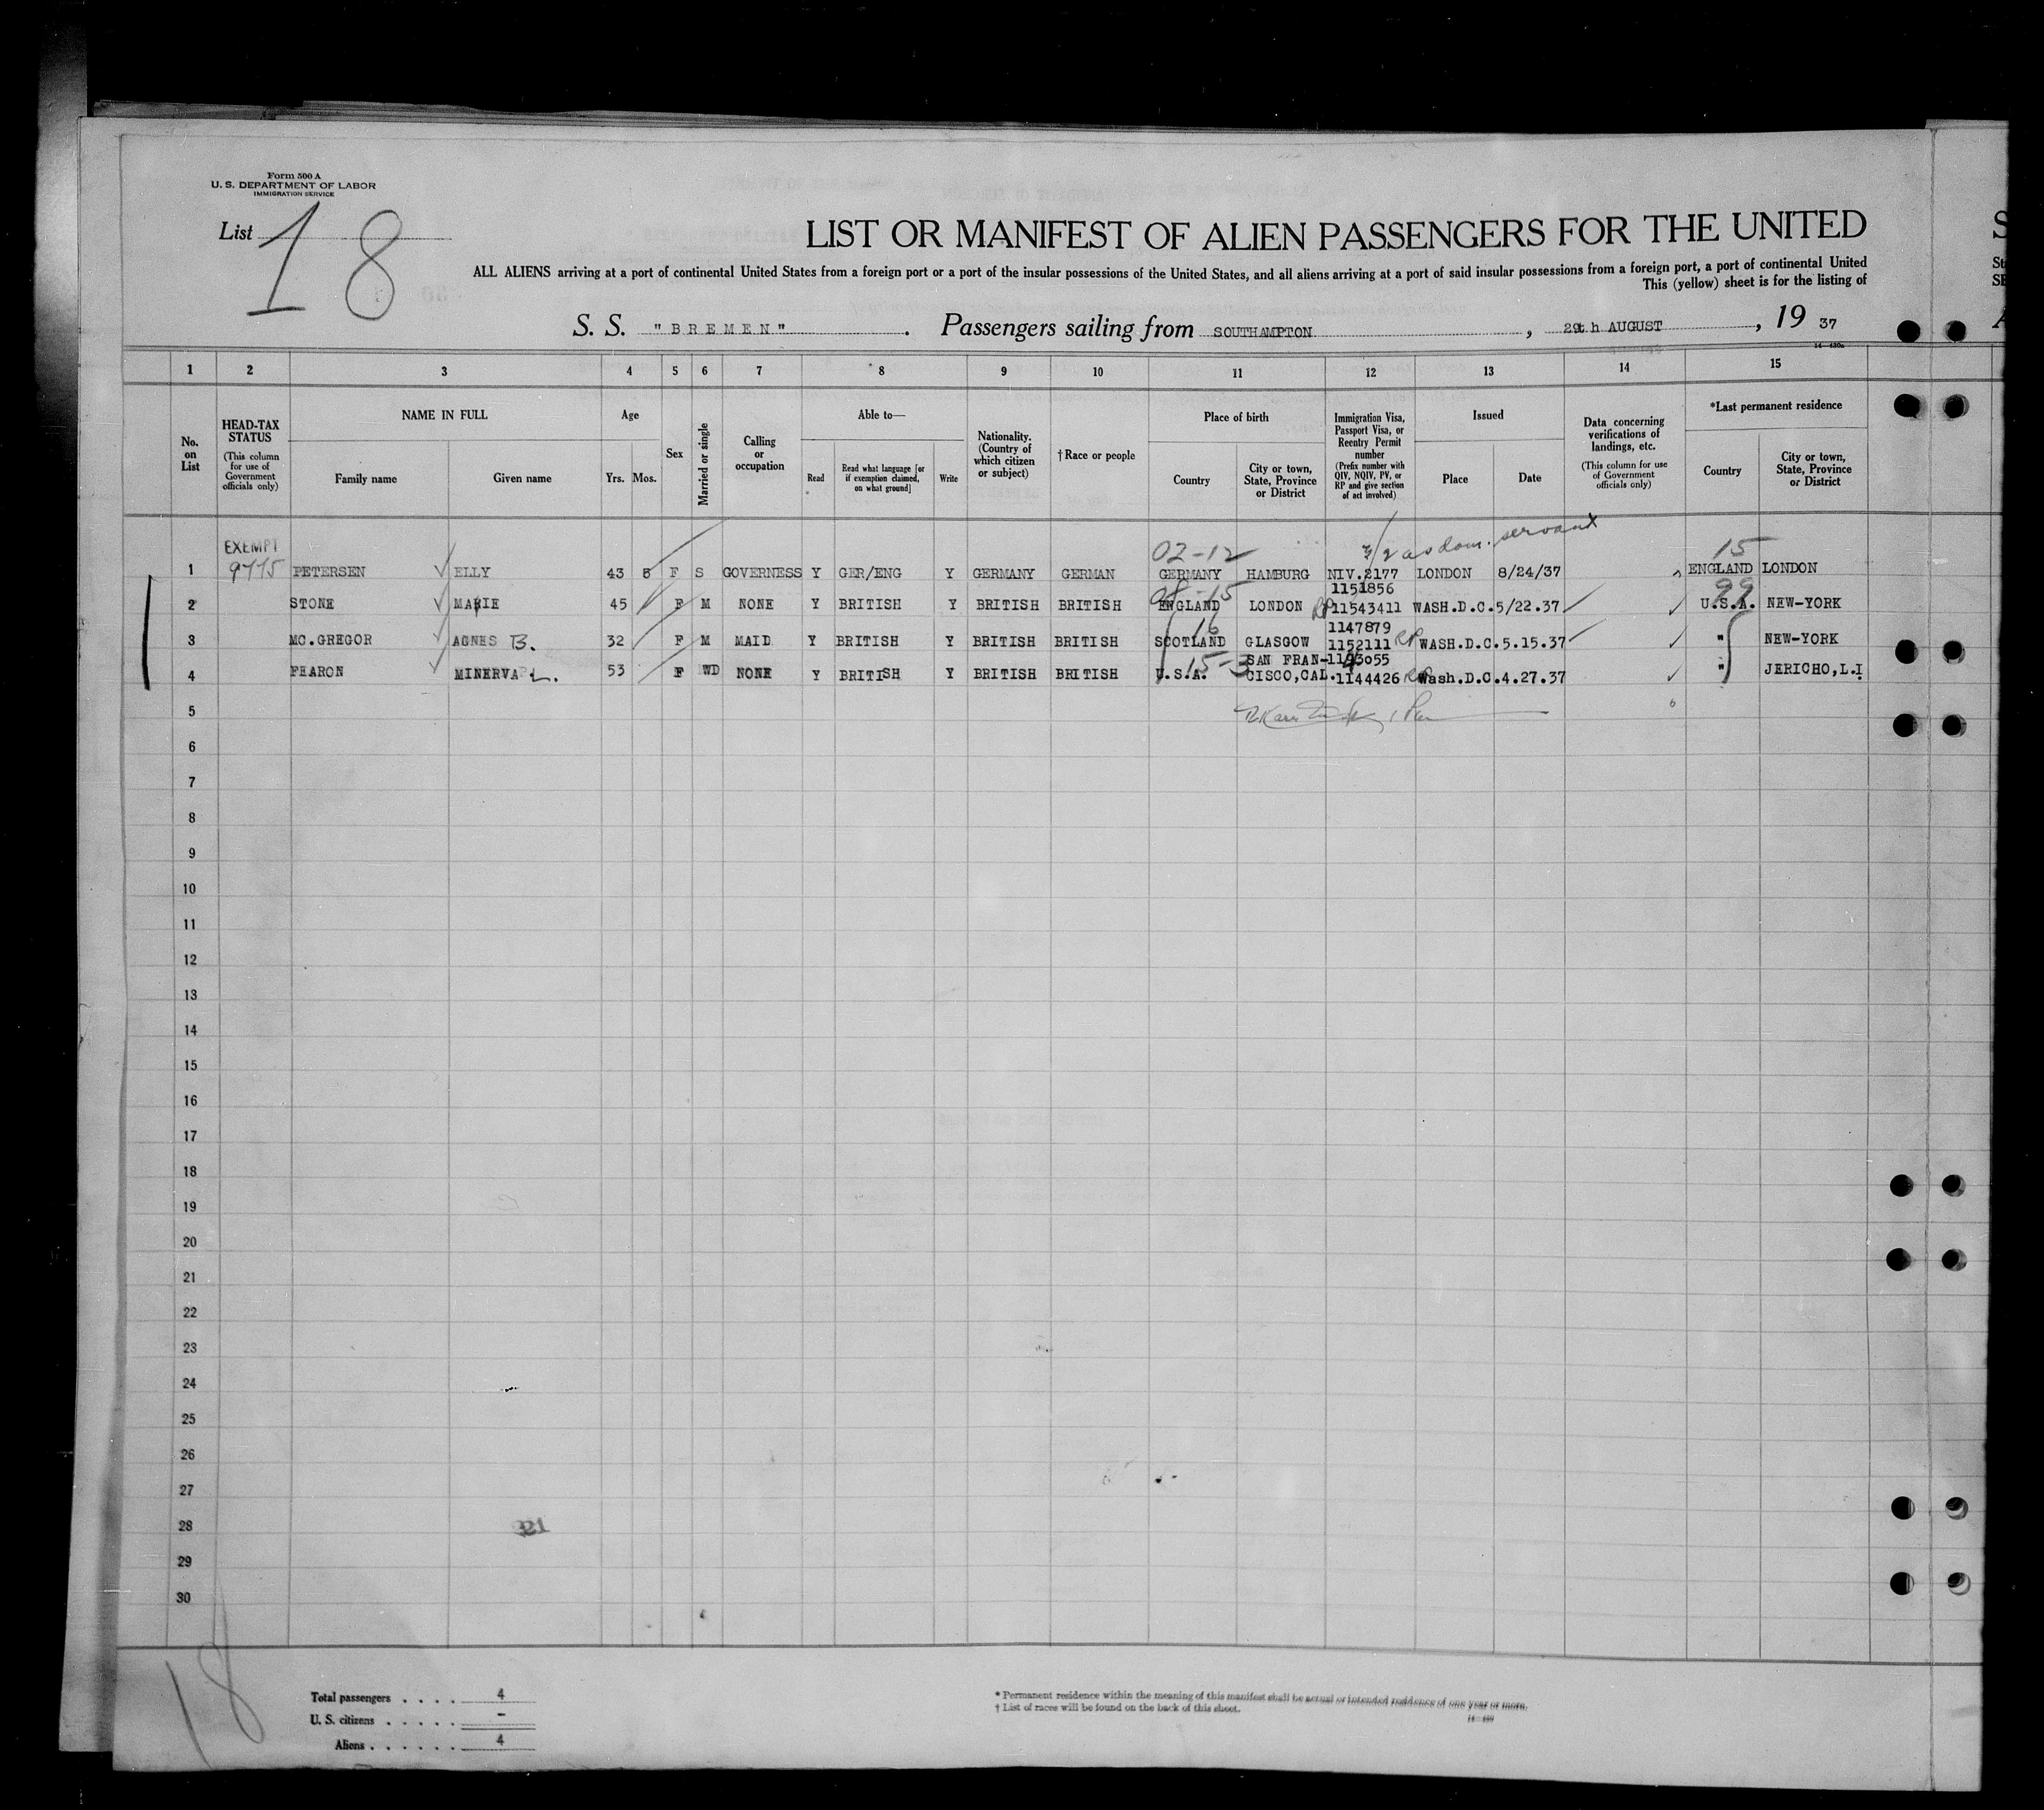 Form 500 A
U. S. DEPARTMENT OF LABOR
IMMIGRATION SERVICE
List 18
LIST OR MANIFEST OF ALIEN PASSENGERS FOR THE UNITED
ALL ALIENS arriving at a port of continental United States from a foreign port or a port of the insular possessions of the United States, and all aliens arriving at a port of said insular possessions from a foreign port, a port of continental United
This (yellow) sheet is for the listing of
S. S. "BREMEN". Passengers sailing from SOUTHAMPTON, 29th AUGUST, 19 37
1 2 3 4 5 6 7 8 9 10 11 12 13 14 15
No. on List
HEAD-TAX STATUS
(This column for use of Government officials only)
NAME IN FULL
Family name
Given name
Age
Yrs. Mos.
Sex
Married or single
Calling or occupation
Able to—
Read
Read what language [or if exemption claimed, on what ground]
Write
Nationality. (Country of which citizen or subject)
† Race or people
Place of birth
Country
City or town, State, Province or District
Immigration Visa, Passport Visa, or Reentry Permit number
(Prefix number with QIV, NQIV, PV, or RP and give section of act involved)
Issued
Place
Date
Data concerning verifications of landings, etc.
(This column for use of Government officials only)
*Last permanent residence
Country
City or town, State, Province or District
EXEMPT
02-12
as dom. servant
15
1 PETERSEN ELLY 43 5 F S GOVERNESS Y GER/ENG Y GERMANY GERMAN GERMANY HAMBURG NIV.2177 LONDON 8/24/37 ENGLAND LONDON
08-15 1151856 99
2 STONE MARIE 45 F M NONE Y BRITISH Y BRITISH BRITISH ENGLAND LONDON RP 11543411 WASH.D.C. 5/22.37 U.S.A. NEW-YORK
16 1147879
3 MC.GREGOR AGNES B. 32 F M MAID Y BRITISH Y BRITISH BRITISH SCOTLAND GLASGOW 1152111 RP WASH.D.C. 5.15.37 " NEW-YORK
15-3 SAN FRAN-
4 FEARON MINERVA L. 53 F WD NONE Y BRITISH Y BRITISH BRITISH U.S.A. CISCO,CAL. 1144426 RP Wash.D.C. 4.27.37 " JERICHO, L.I
5
6
7
8
9
10
11
12
13
14
15
16
17
18
19
20
21
22
23
24
25
26
27
28
29
30
321
18
Total passengers . . . . 4
U. S. citizens . . . . . -
Aliens . . . . . . 4
* Permanent residence within the meaning of this manifest shall be actual or intended residence of one year or more.
† List of races will be found on the back of this sheet.